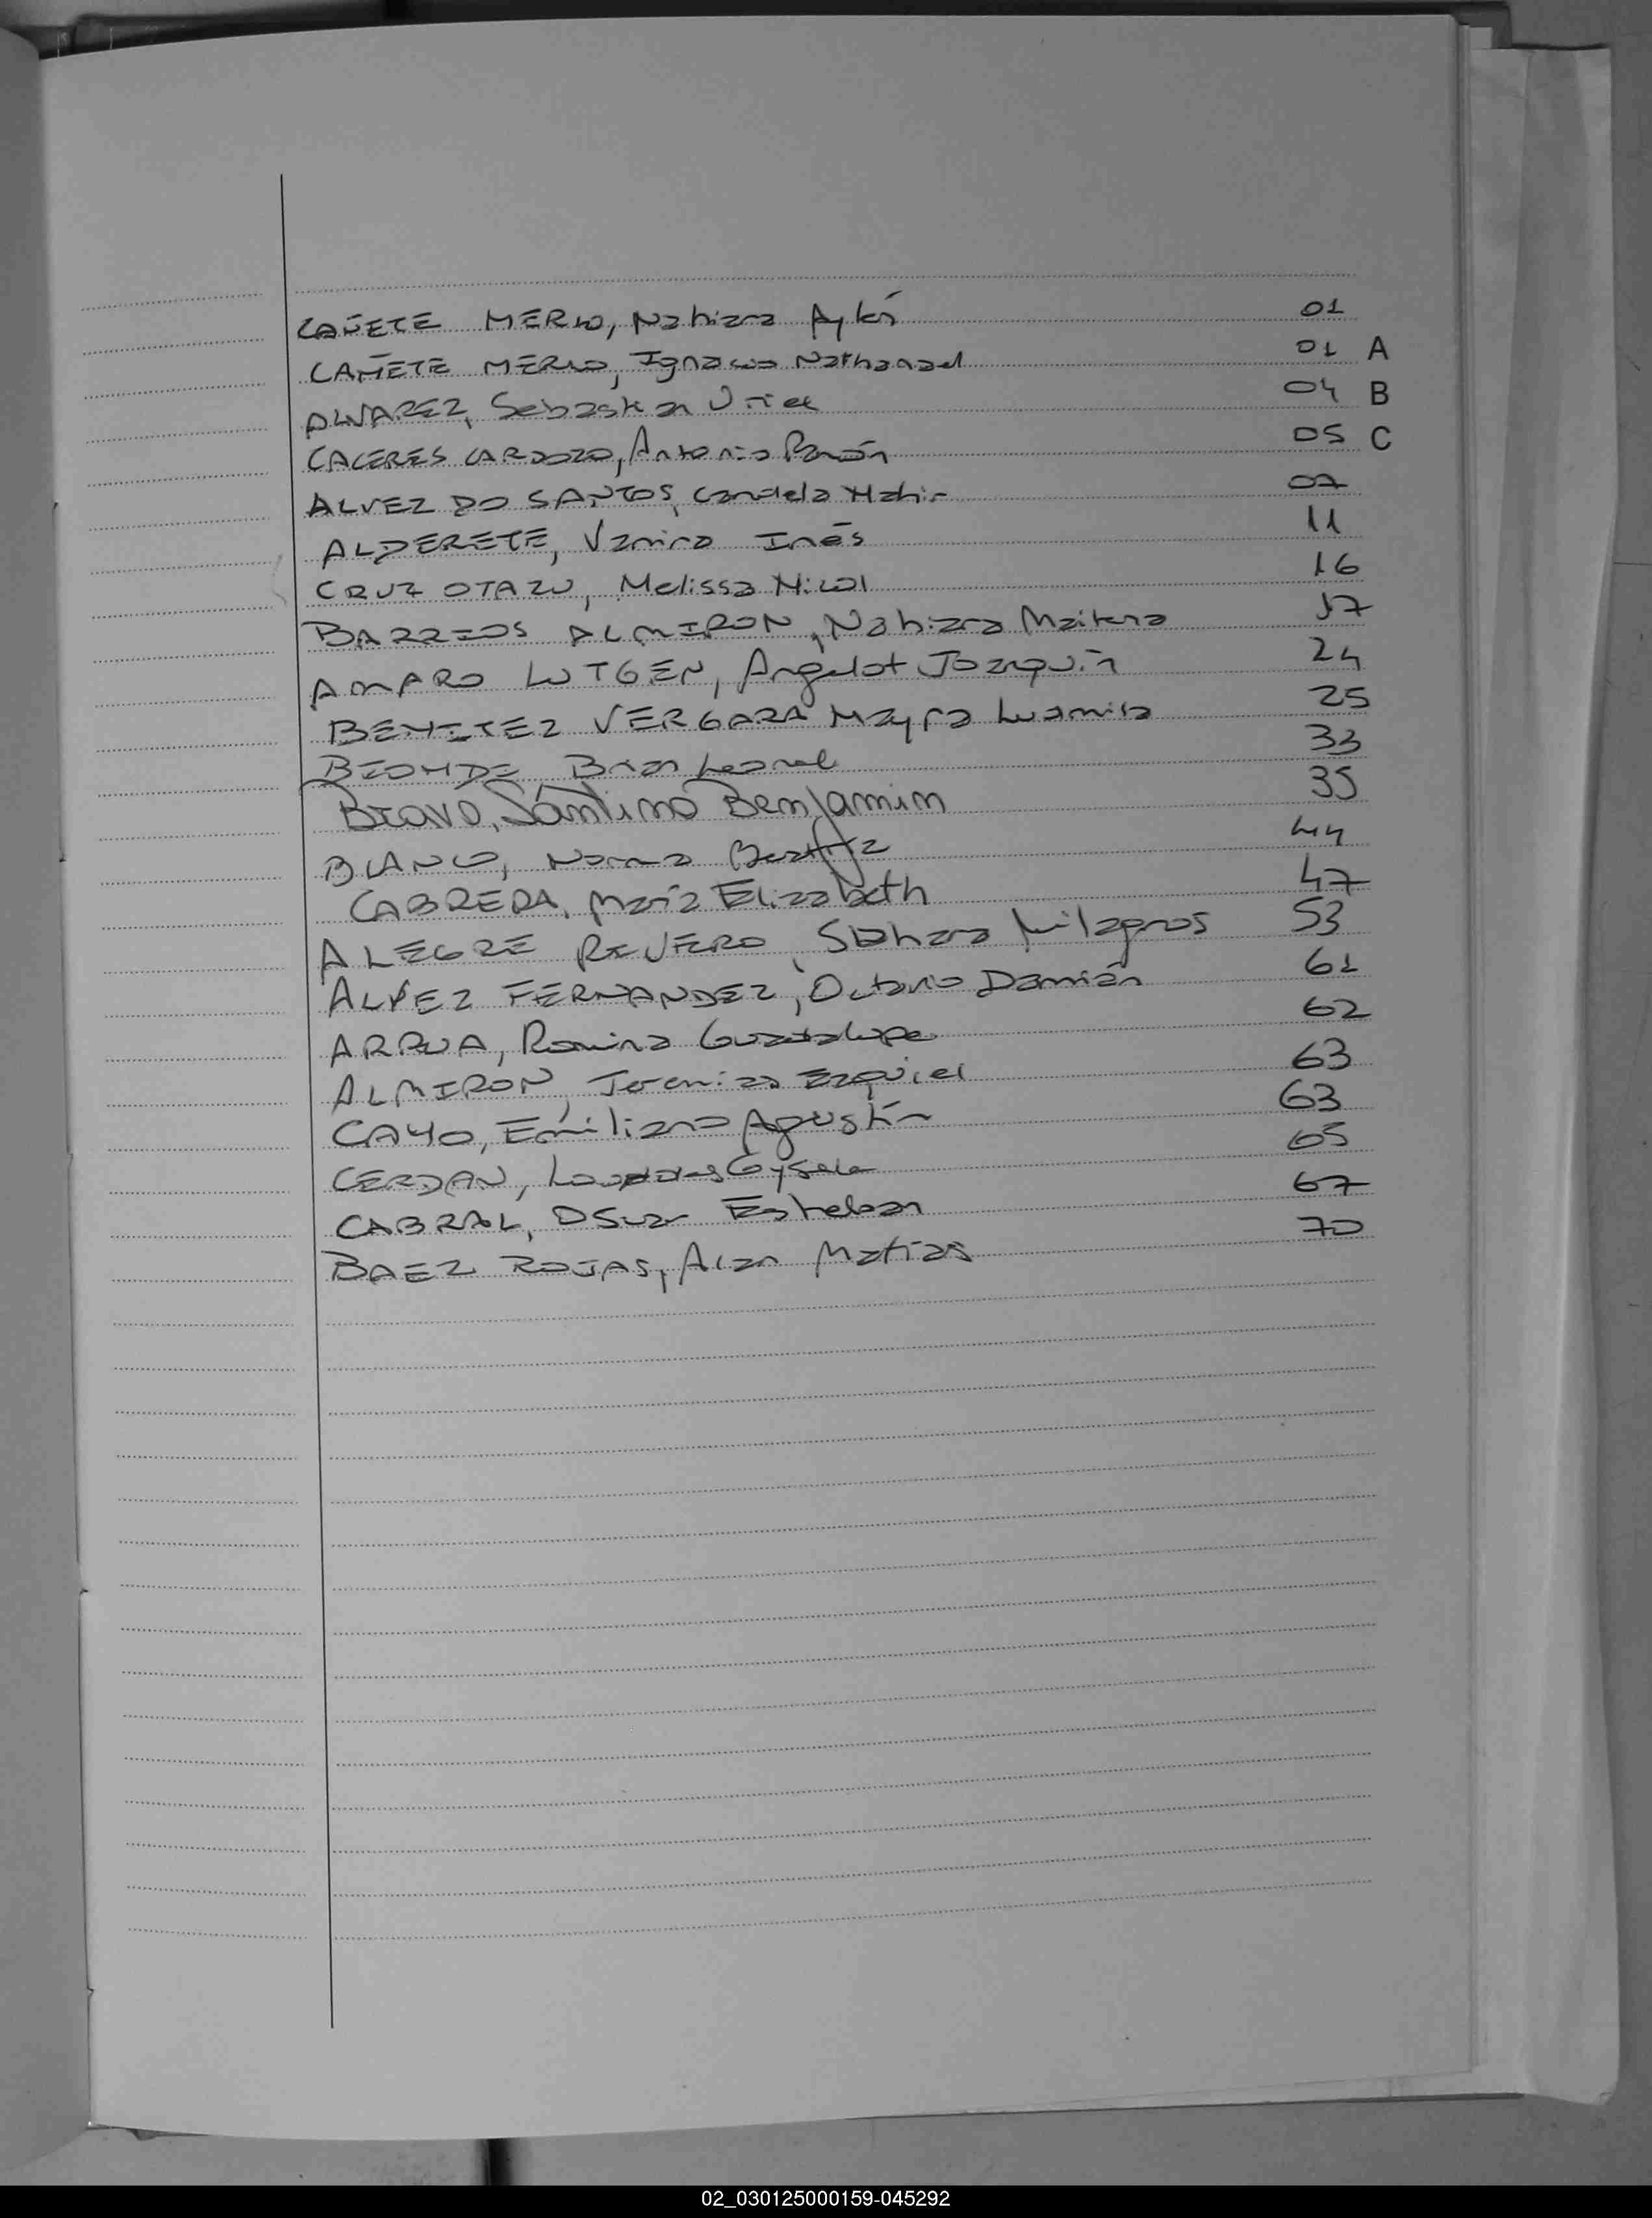 CAÑETE MERLO, Nahiara Aylén 01
CAÑETE MERLO, Ignacio Nathanael 01 A
ALVAREZ, Sebastian Uriel 04 B
CACERES CARDOZO, Antonio Ramón 05 C
ALVEZ DO SANTOS, Candela 07
ALDERETE, Vanina Inés 11
CRUZ OTAZU, Melissa Nicol 16
BARRIOS ALMIRON, Nahiara Maitena 17
AMARO LUTGEN, Angelot Joaquín 24
BENITEZ VERGARA Mayra Ludmila 25
Brian Leonel 33
Bravo, Santino Benjamin 35
BLANCO, Norma Beatriz 44
CABRERA, María Elizabeth 47
ALEGRE RIVERO, Milagros 53
ALVEZ FERNANDEZ, Octavio Damián 61
ARRUA, Romina Guadalupe 62
ALMIRON, Jeremias Ezequiel 63
CAYO, Emiliano Agustín 63
CERDAN, Lourdes Gysela 65
CABRAL, Oscar Esteban 67
BAEZ ROJAS, Alan Matías 70
02_030125000159-045292